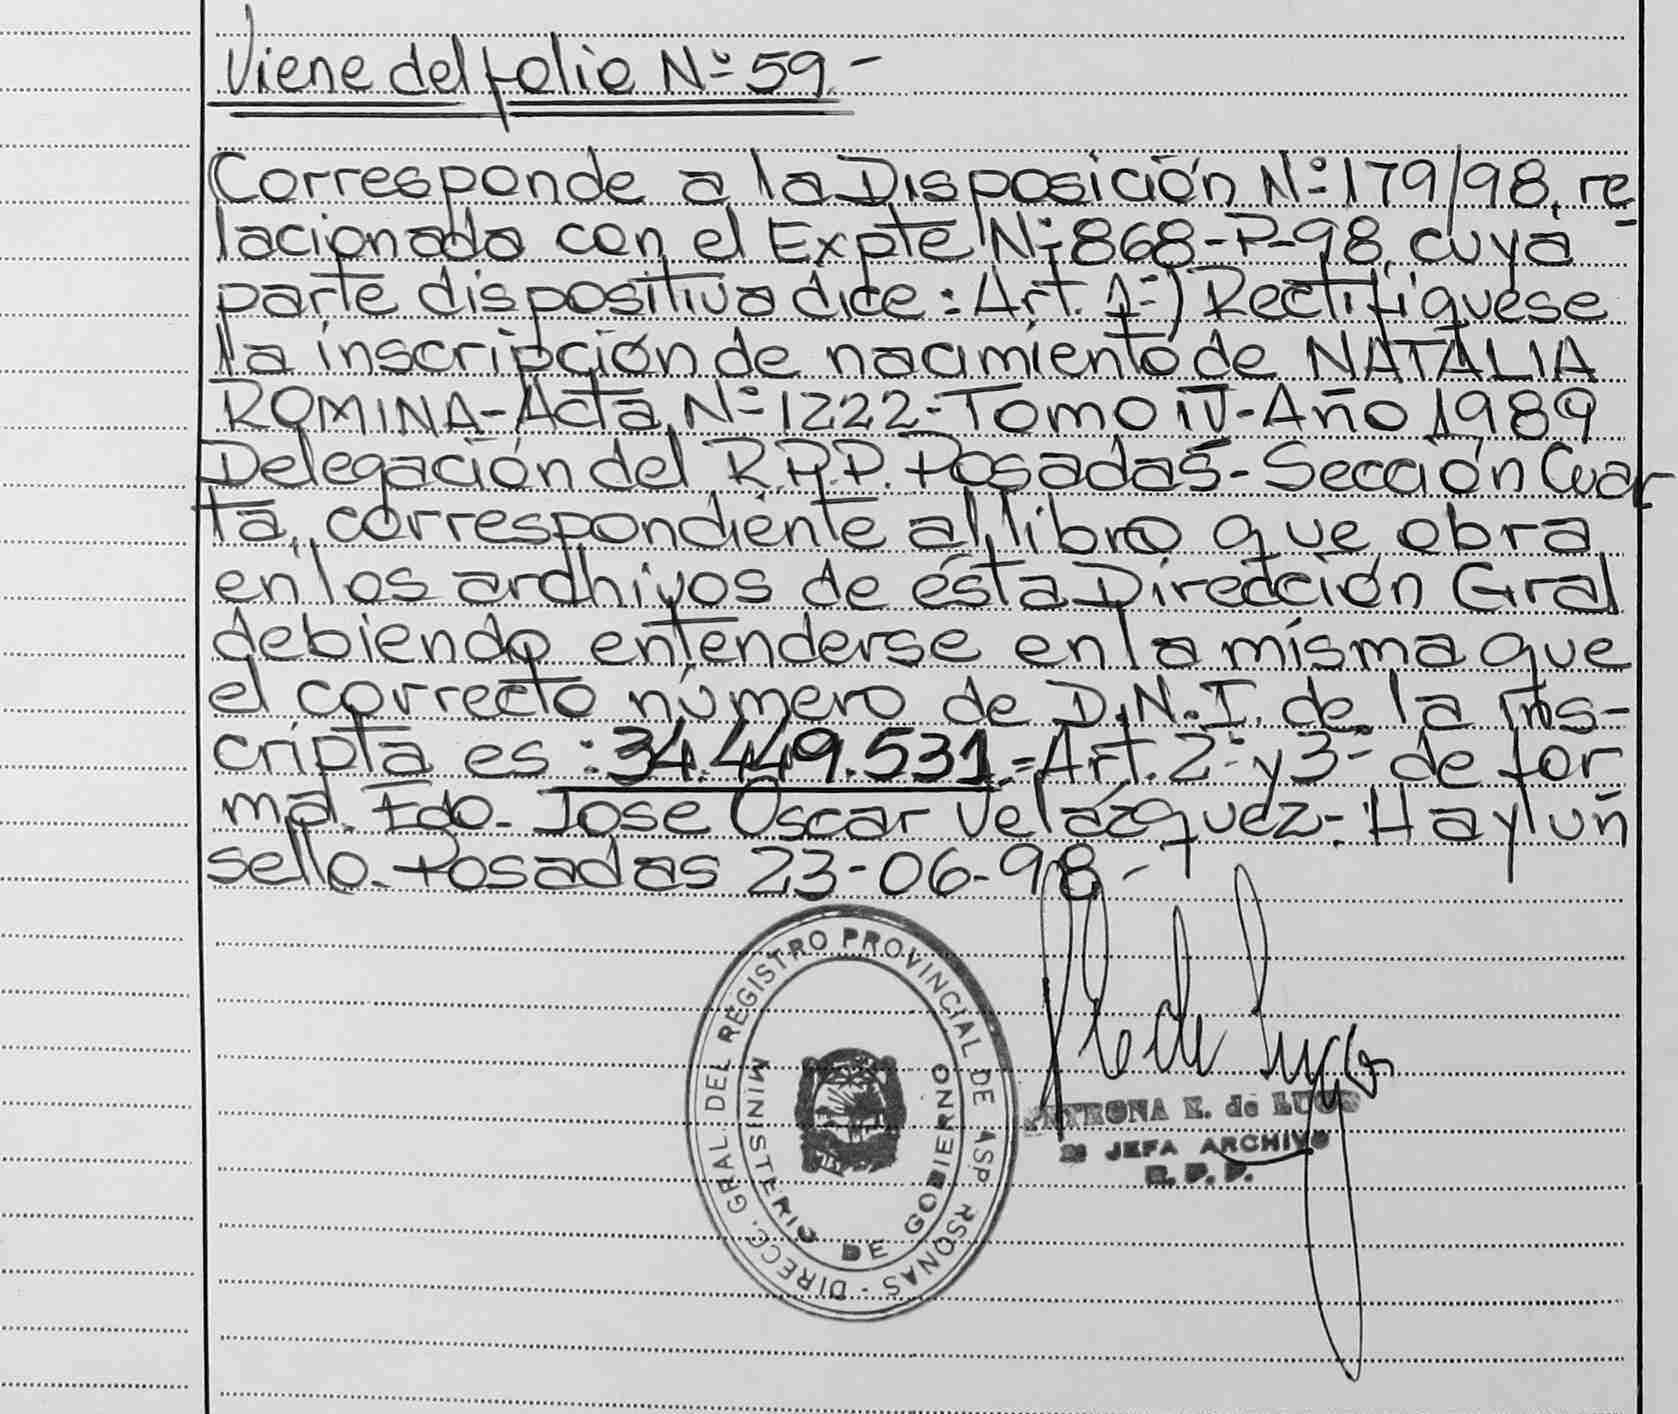 Viene del folio Nº 59.-
Corresponde a la Disposición Nº 179/98, re
lacionada con el Expte Nº 868-P-98, cuya
parte dispositiva dice: Art. 1º) Rectifíquese
la inscripción de nacimiento de NATALIA
ROMINA-Acta Nº 1222-Tomo IV-Año 1989
Delegación del R.P.P. Posadas-Sección Cuar
ta, correspondiente al libro que obra
en los archivos de ésta Dirección Gral
debiendo entenderse en la misma que
el correcto número de D.N.I. de la ins-
cripta es: 34.449.531.=Art. 2º y 3º de for
ma. Fdo. Jose Oscar Velázquez-Hay un
sello. Posadas 23-06-98.-
DIRECC. GRAL. DEL REGISTRO PROVINCIAL DE ASP RSONAS -
MINISTERIO DE GOBIERNO
PETRONA E. de LUGO
JEFA ARCHIVO
R. P. P.